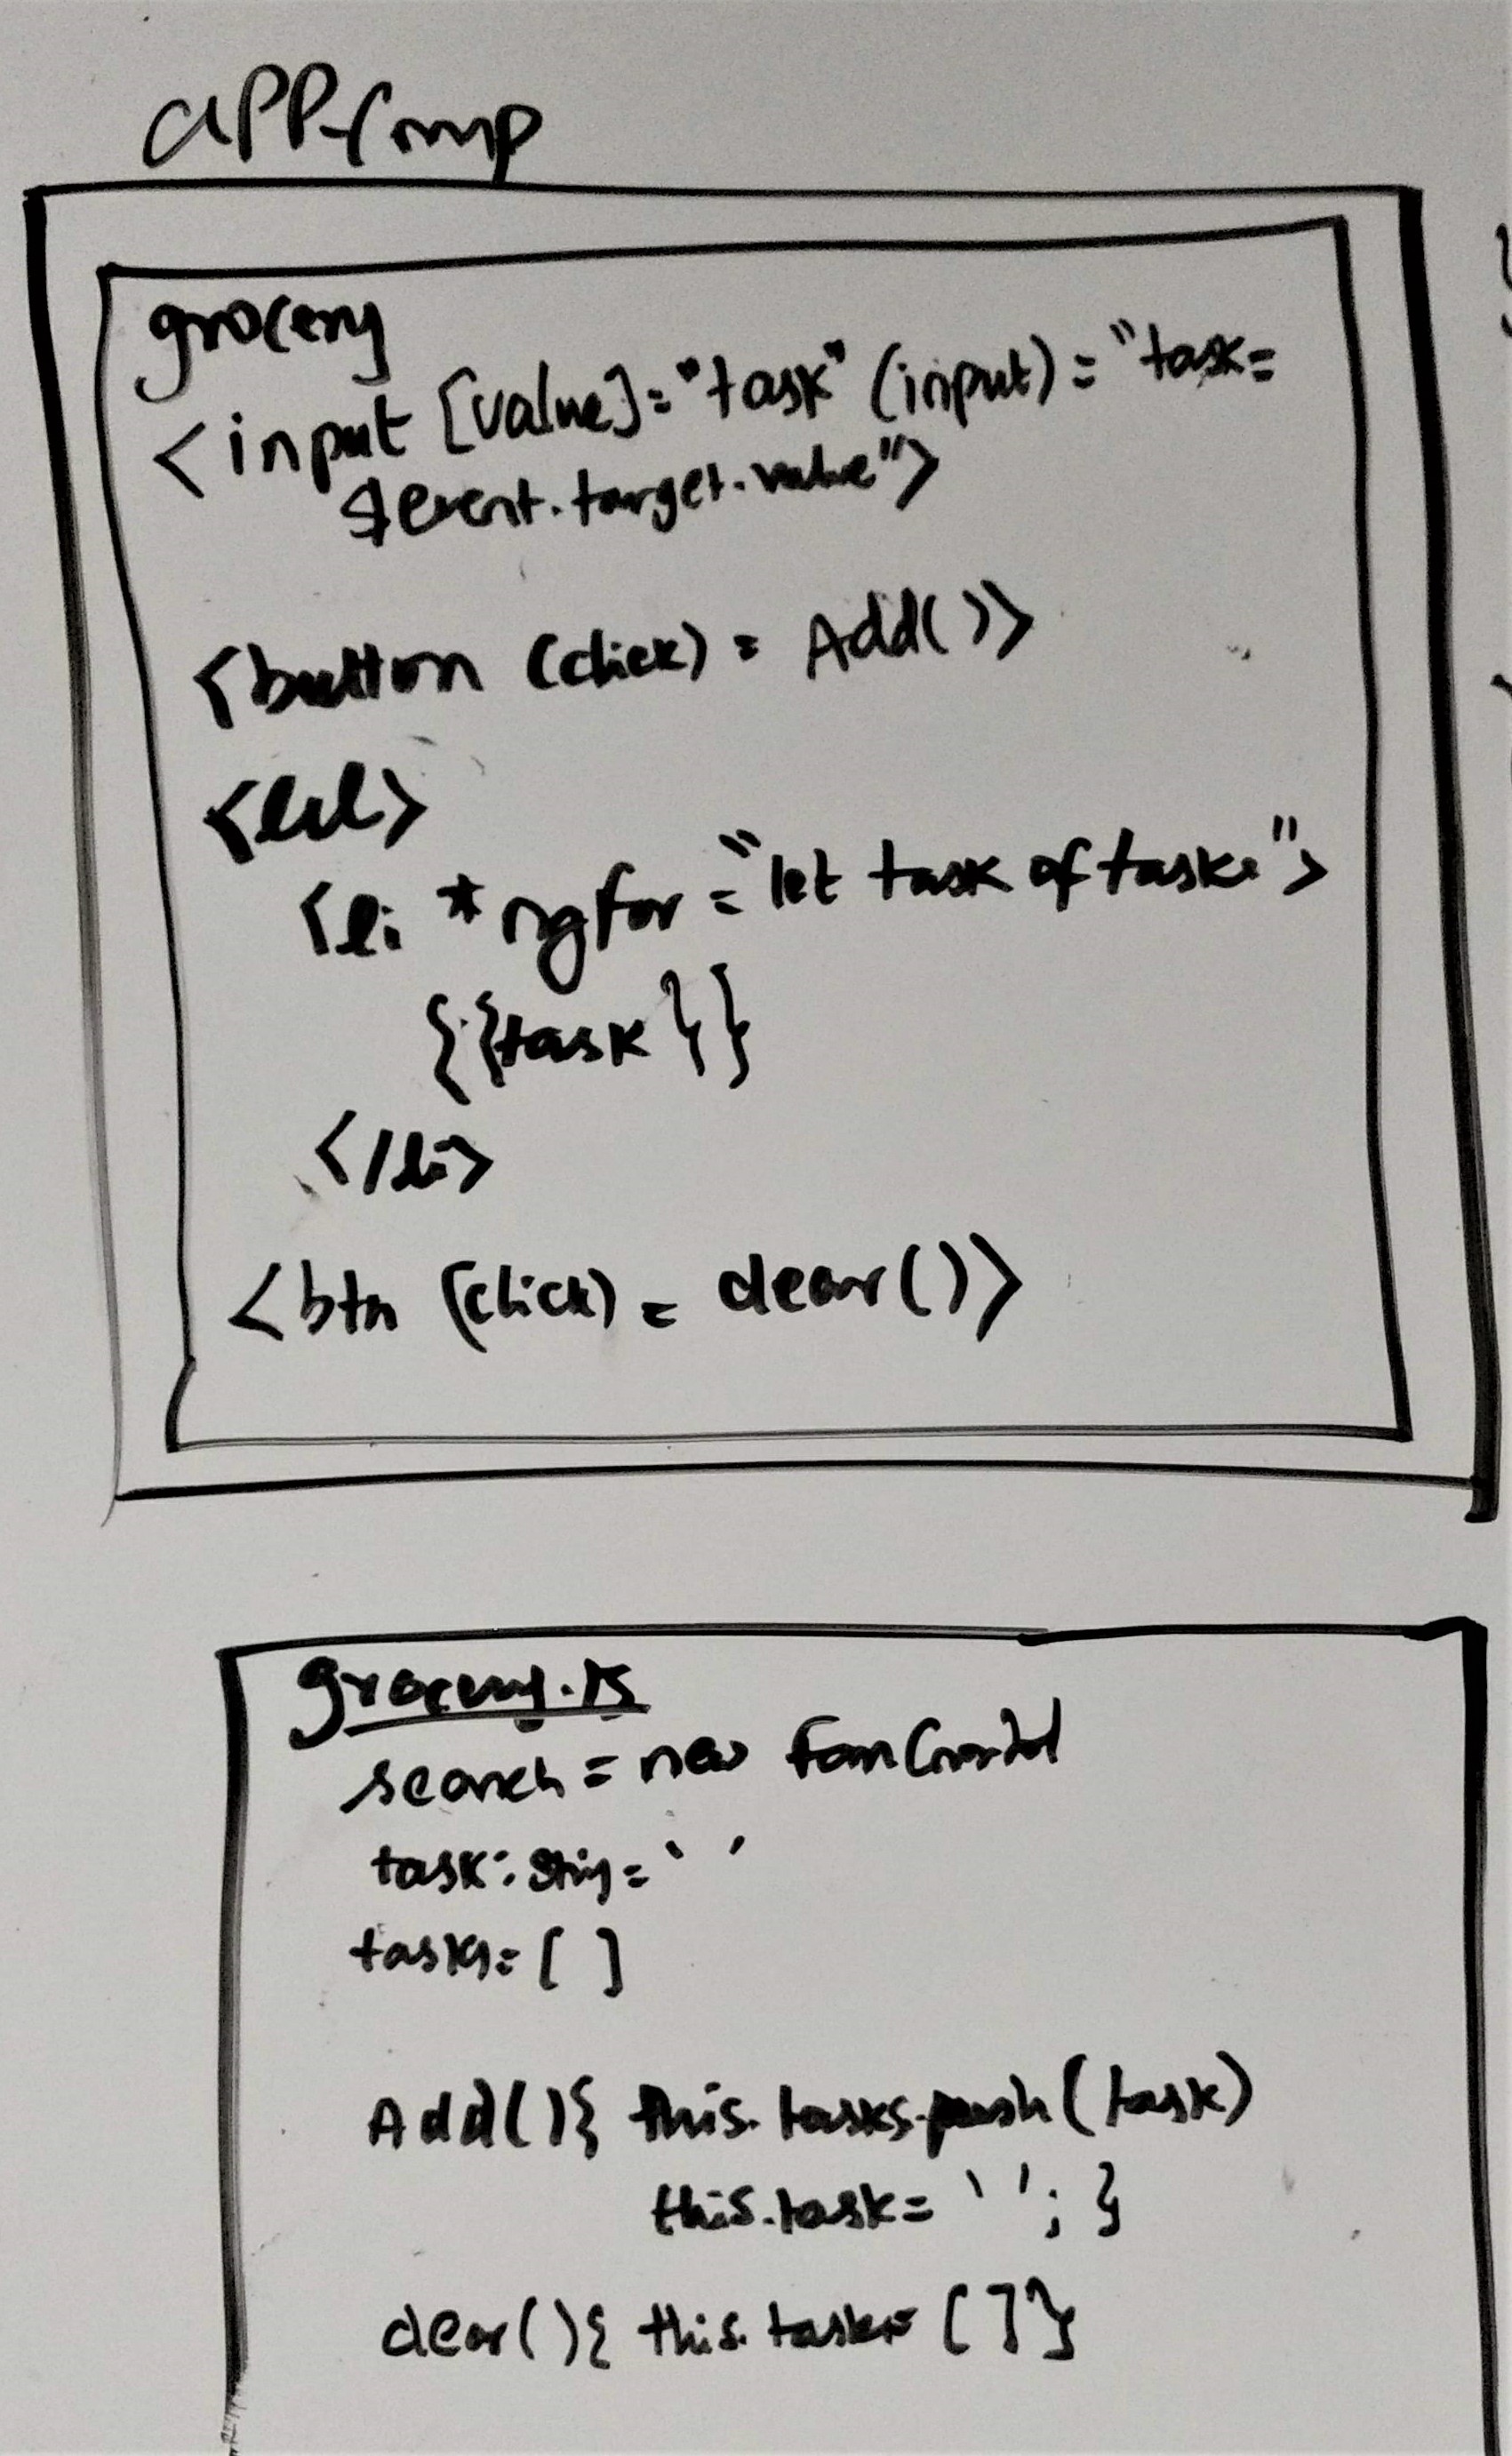 app-comp
grocery
<input [value]="task" (input)="task=
$event.target.value">
<button (click) = Add()>
<ul>
<li *ngfor="let task of tasks">
{{task}}
</li>
<btn (click) = clear()>
grocery.ts
search = new FormControl
task: string = ' '
tasks = [ ]
Add(){ this.tasks.push(task)
this.task = ' '; }
clear(){ this.tasks = [ ]}